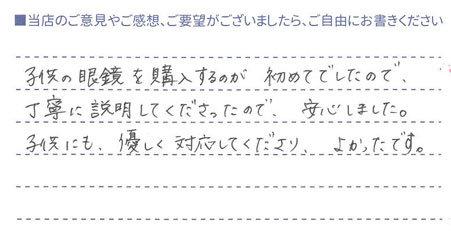 ■当店のご意見やご感想、ご要望がございましたら、ご自由にお書きください
子供の眼鏡を購入するのが 初めてでしたので、
丁寧に説明してくださったので、 安心しました。
子供にも、優しく対応してくださり、 よかったです。